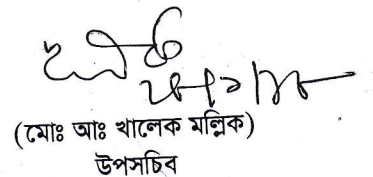 (মোঃ আঃ খালেক মল্লিক)
উপসচিব